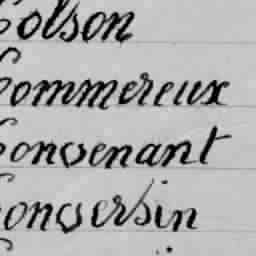 Colson
Commereux
Convenant
Conversin